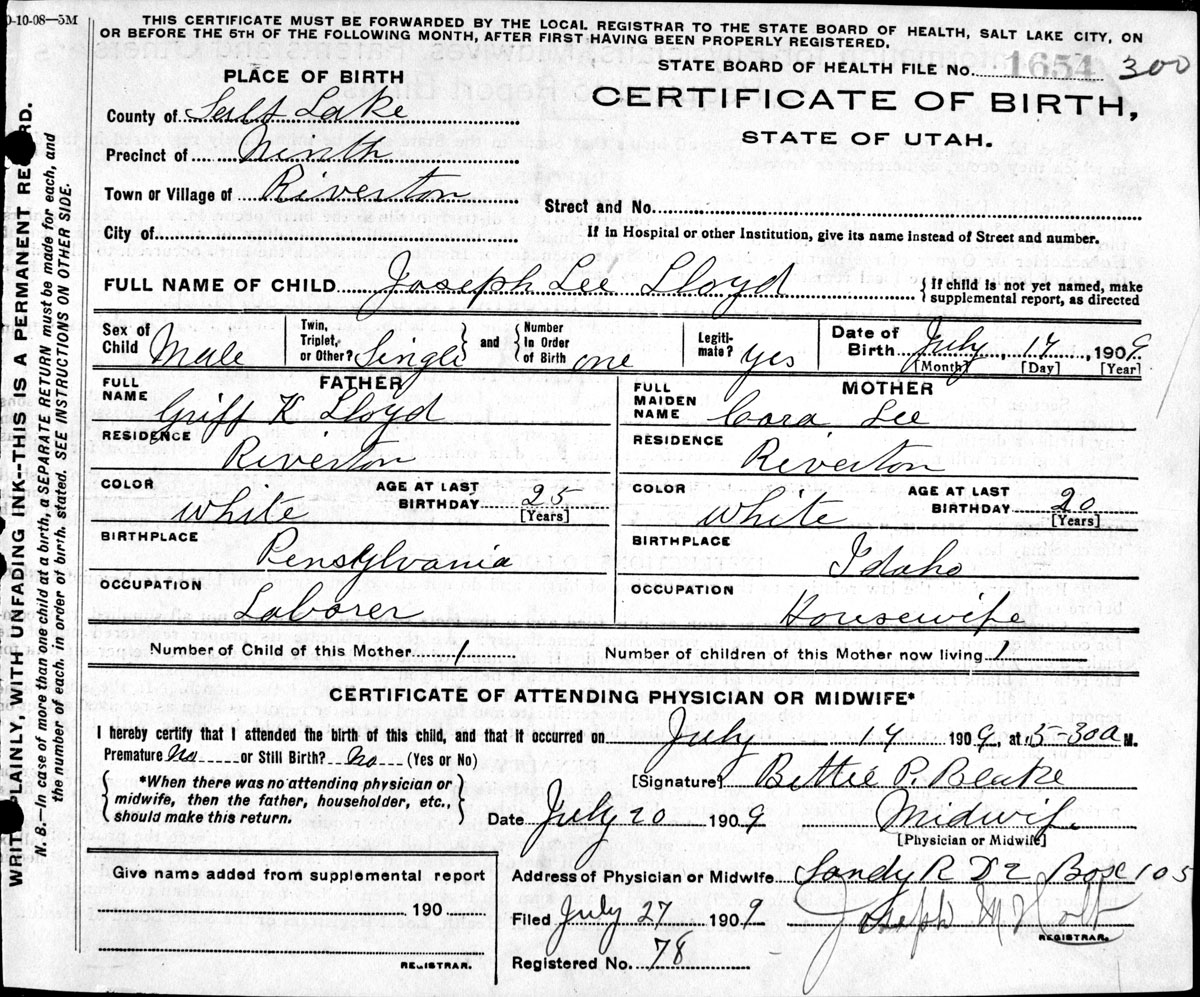 0-10-08—5M
THIS CERTIFICATE MUST BE FORWARDED BY THE LOCAL REGISTRAR TO THE STATE BOARD OF HEALTH, SALT LAKE CITY, ON
OR BEFORE THE 5TH OF THE FOLLOWING MONTH, AFTER FIRST HAVING BEEN PROPERLY REGISTERED.
STATE BOARD OF HEALTH FILE No. 1654 300
PLACE OF BIRTH
CERTIFICATE OF BIRTH,
STATE OF UTAH.
County of Salt Lake
Precinct of North
Town or Village of Riverton
Street and No.
City of
If in Hospital or other Institution, give its name instead of Street and number.
FULL NAME OF CHILD Joseph Lee Lloyd
{If child is not yet named, make supplemental report, as directed
Sex of Child Male
Twin, Triplet, or Other? Single
and
Number In Order of Birth one
Legitimate? yes
Date of Birth July, 14, 1909
[Month] [Day] [Year]
FATHER
FULL NAME Griff K Lloyd
RESIDENCE Riverton
COLOR White
AGE AT LAST BIRTHDAY 25 [Years]
BIRTHPLACE Pensylvania
OCCUPATION Laborer
MOTHER
FULL MAIDEN NAME Cora Lee
RESIDENCE Riverton
COLOR White
AGE AT LAST BIRTHDAY 20 [Years]
BIRTHPLACE Idaho
OCCUPATION Housewife
Number of Child of this Mother 1
Number of children of this Mother now living 1
CERTIFICATE OF ATTENDING PHYSICIAN OR MIDWIFE*
I hereby certify that I attended the birth of this child, and that it occurred on July 14 1909, at 5-30 a M.
Premature No or Still Birth? No (Yes or No)
*When there was no attending physician or
midwife, then the father, householder, etc.,
should make this return.
[Signature] Bettie P.
Date July 20 1909
Midwif.
[Physician or Midwife]
Address of Physician or Midwife Sandy R D 2 Box 105
Filed July 27 1909
Joseph Holt
REGISTRAR.
Registered No. 78
Give name added from supplemental report
190
REGISTRAR.
WRITE PLAINLY, WITH UNFADING INK--THIS IS A PERMANENT RECORD.
N. B.—In case of more than one child at a birth, a SEPARATE RETURN must be made for each, and
the number of each, in order of birth, stated. SEE INSTRUCTIONS ON OTHER SIDE.